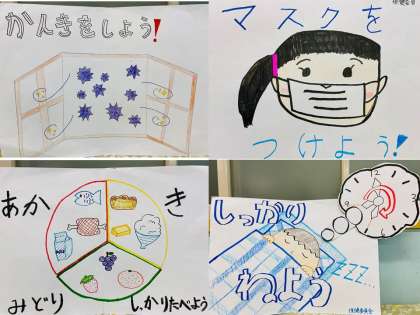 かんきをしよう!
保健委員
マスクを
つけよう!
あか
き
みどり
しっかりたべよう
しっかり
ねよう
ZZZ...
保健委員会